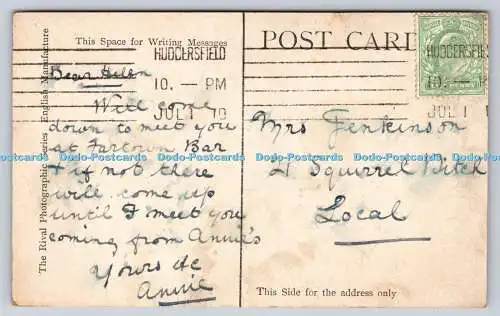 This Space for Writing Messages
POST CARD
The Rival Photographic Series English Manufacture
HUDDERSFIELD
10. — PM
JUL 1 10
HUDDERSFIELD
10. — PM
JUL 1
Dear Helen
Will come
down to meet you
at Fartown Bar
& if not there
will come up
until I meet you
coming from Annie's
Yours &c
Annie
Mrs Jenkinson
21 Squirrel Ditch
Local
This Side for the address only
Dodo-Postcards Dodo-Postcards Dodo-Postcards Dodo-Postcards Dodo-Postcards